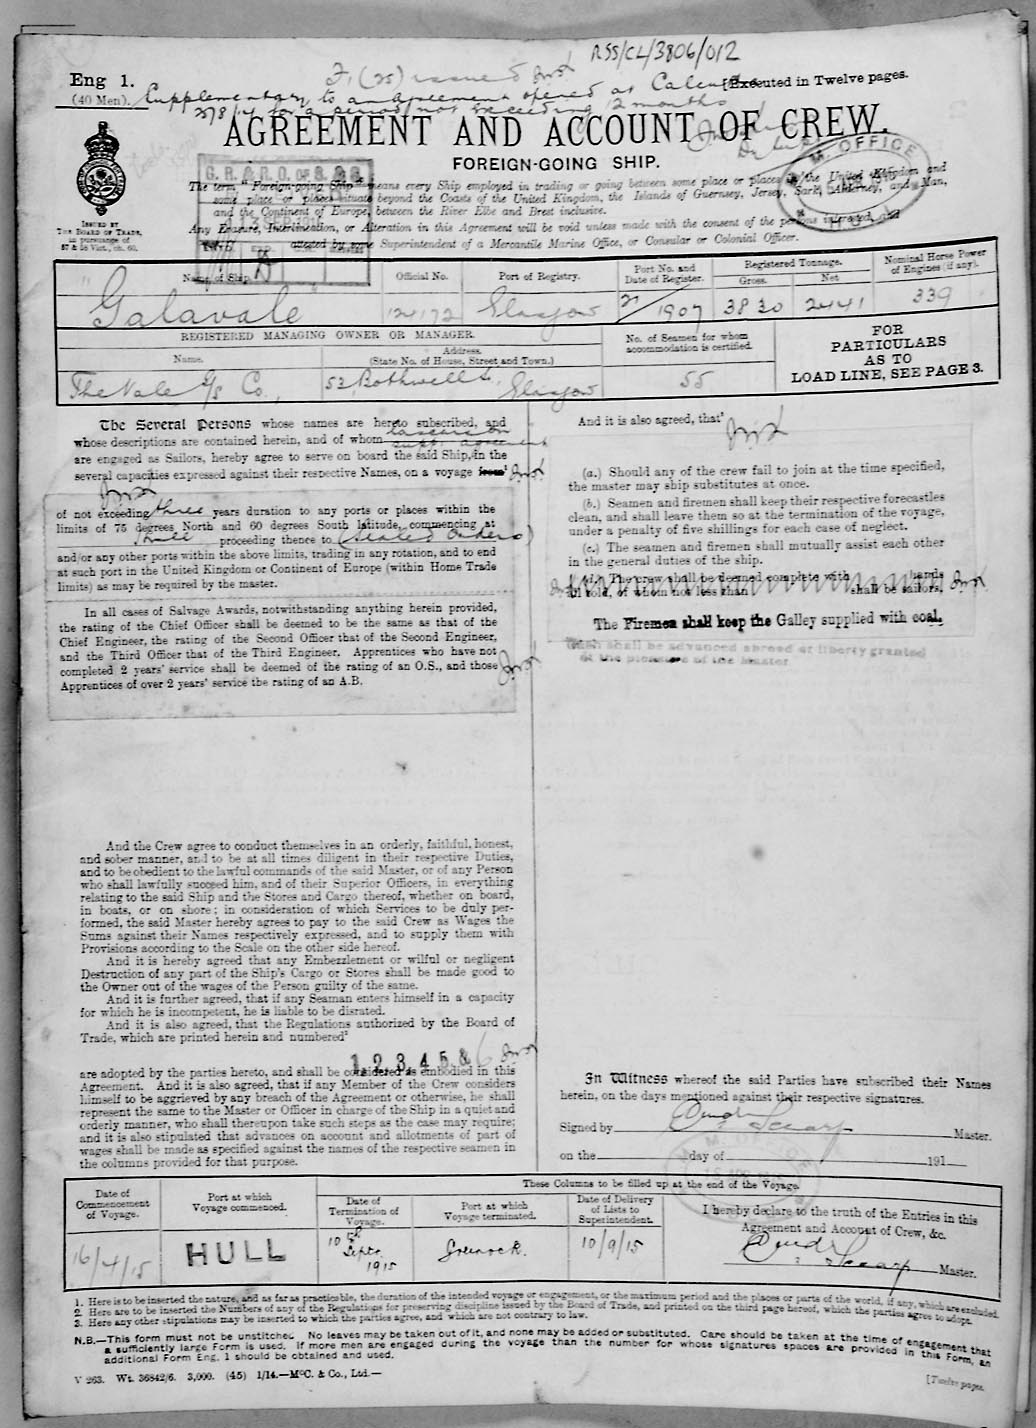 RSS/CL/3806/012
Eng 1.
(40 Men).
[Executed in Twelve pages.
Supplementary to an agreement opened at
for a period not exceeding 12 months
AGREEMENT AND ACCOUNT OF CREW.
FOREIGN-GOING SHIP.
ISSUED BY
THE BOARD OF TRADE,
in pursuance of
57 & 58 Vict., ch. 60.
G. R. & R. O. OF S. & S.
M. OFFICE
HULL
The term "Foreign-going Ship" means every Ship employed in trading or going between some place or places in the United Kingdom and
some place or places situate beyond the Coasts of the United Kingdom, the Islands of Guernsey, Jersey, Sark, Alderney, and Man,
and the Continent of Europe, between the River Elbe and Brest inclusive.
Any Erasure, Interlineation, or Alteration in this Agreement will be void unless made with the consent of the persons interested, and
attested by some Superintendent of a Mercantile Marine Office, or Consular or Colonial Officer.
Name of Ship. Official No. Port of Registry. Port No. and Date of Register. Registered Tonnage. Gross. Net Nominal Horse Power of Engines (if any).
Galavale 124172 Glasgow /1907 3830 2441 339
REGISTERED MANAGING OWNER OR MANAGER.
Name. Address. (State No. of House, Street and Town.) No. of Seamen for whom accommodation is certified.
FOR PARTICULARS AS TO LOAD LINE, SEE PAGE 3.
The Vale S/S Co., 53 Bothwell St, Glasgow 55
The Several Persons whose names are hereto subscribed, and
whose descriptions are contained herein, and of whom
are engaged as Sailors, hereby agree to serve on board the said Ship, in the
several capacities expressed against their respective Names, on a voyage from¹
of not exceeding three years duration to any ports or places within the
limits of 75 degrees North and 60 degrees South latitude, commencing at
Hull proceeding thence to (Sealed Orders)
and/or any other ports within the above limits, trading in any rotation, and to end
at such port in the United Kingdom or Continent of Europe (within Home Trade
limits) as may be required by the master.
In all cases of Salvage Awards, notwithstanding anything herein provided,
the rating of the Chief Officer shall be deemed to be the same as that of the
Chief Engineer, the rating of the Second Officer that of the Second Engineer,
and the Third Officer that of the Third Engineer. Apprentices who have not
completed 2 years' service shall be deemed of the rating of an O.S., and those
Apprentices of over 2 years' service the rating of an A.B.
And the Crew agree to conduct themselves in an orderly, faithful, honest,
and sober manner, and to be at all times diligent in their respective Duties,
and to be obedient to the lawful commands of the said Master, or of any Person
who shall lawfully succeed him, and of their Superior Officers, in everything
relating to the said Ship and the Stores and Cargo thereof, whether on board,
in boats, or on shore; in consideration of which Services to be duly per-
formed, the said Master hereby agrees to pay to the said Crew as Wages the
Sums against their Names respectively expressed, and to supply them with
Provisions according to the Scale on the other side hereof.
And it is hereby agreed that any Embezzlement or wilful or negligent
Destruction of any part of the Ship's Cargo or Stores shall be made good to
the Owner out of the wages of the Person guilty of the same.
And it is further agreed, that if any Seaman enters himself in a capacity
for which he is incompetent, he is liable to be disrated.
And it is also agreed, that the Regulations authorized by the Board of
Trade, which are printed herein and numbered²
1 2 3 4 5 & 6
are adopted by the parties hereto, and shall be considered as embodied in this
Agreement. And it is also agreed, that if any Member of the Crew considers
himself to be aggrieved by any breach of the Agreement or otherwise, he shall
represent the same to the Master or Officer in charge of the Ship in a quiet and
orderly manner, who shall thereupon take such steps as the case may require;
and it is also stipulated that advances on account and allotments of part of
wages shall be made as specified against the names of the respective seamen in
the columns provided for that purpose.
And it is also agreed, that³
(a.) Should any of the crew fail to join at the time specified,
the master may ship substitutes at once.
(b.) Seamen and firemen shall keep their respective forecastles
clean, and shall leave them so at the termination of the voyage,
under a penalty of five shillings for each case of neglect.
(c.) The seamen and firemen shall mutually assist each other
in the general duties of the ship.
(d.) The crew shall be deemed complete with hands
all told, of whom not less than shall be sailors,
The Firemen shall keep the Galley supplied with coal.
shall be advanced abroad or liberty granted
at the pleasure of the Master
In Witness whereof the said Parties have subscribed their Names
herein, on the days mentioned against their respective signatures.
Signed by Master.
on the day of 191
These Columns to be filled up at the end of the Voyage.
Date of Commencement of Voyage. Port at which Voyage commenced. Date of Termination of Voyage. Port at which Voyage terminated. Date of Delivery of Lists to Superintendent. I hereby declare to the truth of the Entries in this Agreement and Account of Crew, &c.
16/4/15 HULL 10th Septr 1915 Greenock. 10/9/15 Master.
1. Here is to be inserted the nature, and as far as practicable, the duration of the intended voyage or engagement, or the maximum period and the places or parts of the world, if any, which are excluded.
2. Here are to be inserted the Numbers of any of the Regulations for preserving discipline issued by the Board of Trade, and printed on the third page hereof, which the parties agree to adopt.
3. Here any other stipulations may be inserted to which the parties agree, and which are not contrary to law.
N.B.—This form must not be unstitched. No leaves may be taken out of it, and none may be added or substituted. Care should be taken at the time of engagement that
a sufficiently large Form is used. If more men are engaged during the voyage than the number for whose signatures spaces are provided in this Form, an
additional Form Eng. 1 should be obtained and used.
V 263. Wt. 36842/6. 3,000. (45) 1/14.—McC. & Co., Ltd.—
[Twelve pages.